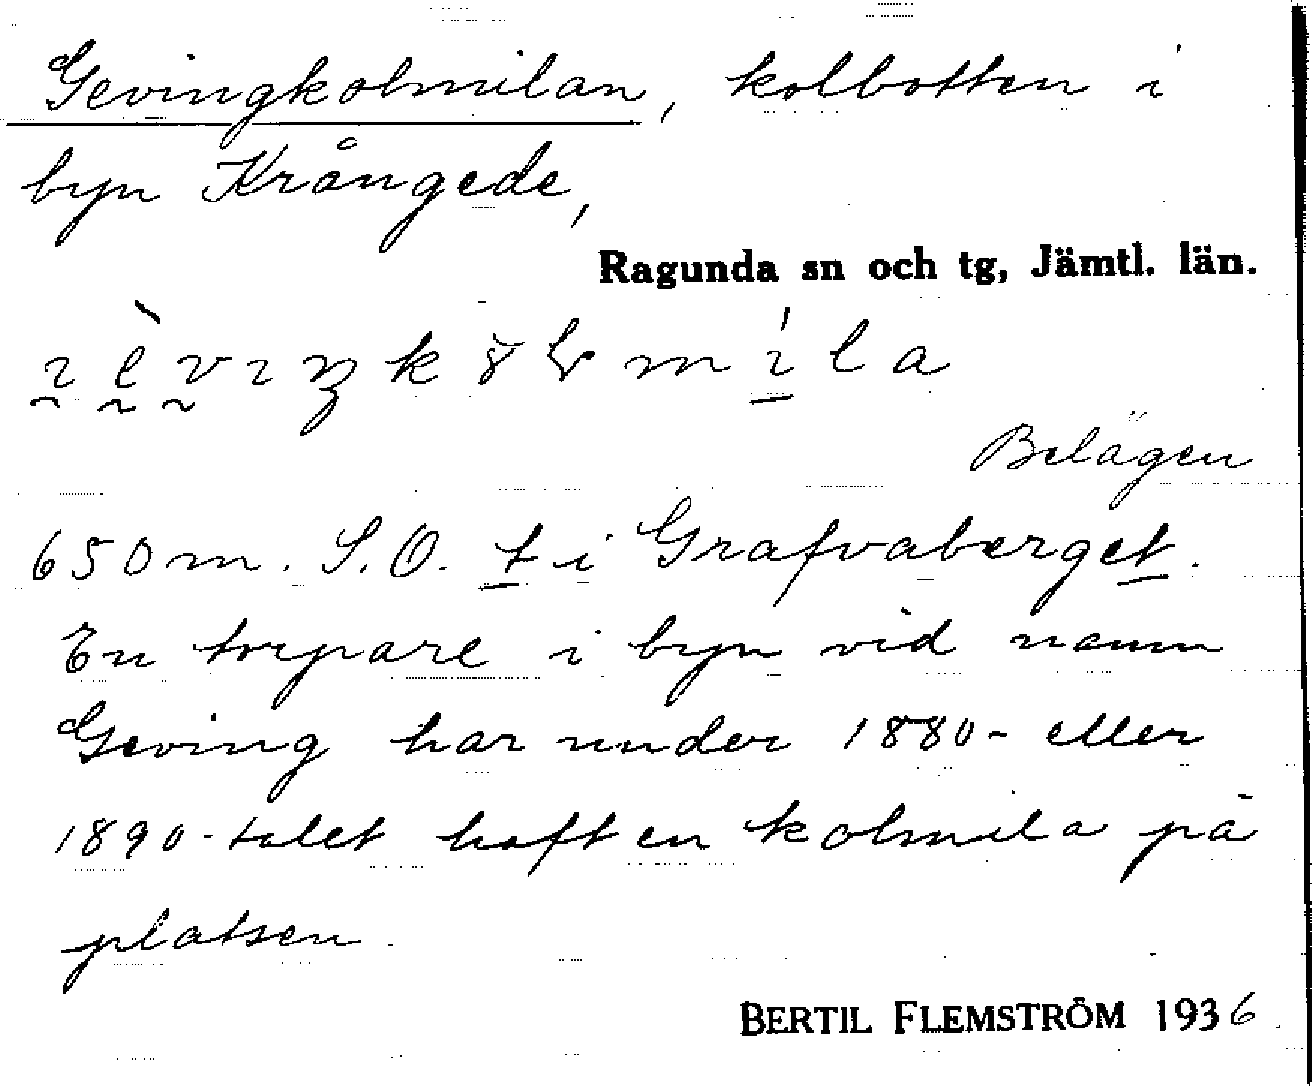 Gevingkolmilan, kolbotten i
byn Krångede,
Ragunda sn och tg, Jämtl. län.
Belägen
650 m. S.O. t i Grafvaberget.
En torpare i byn vid namn
Geving har under 1880- eller
1890-talet haft en kolmila på
platsen.
BERTIL FLEMSTRÖM 1936